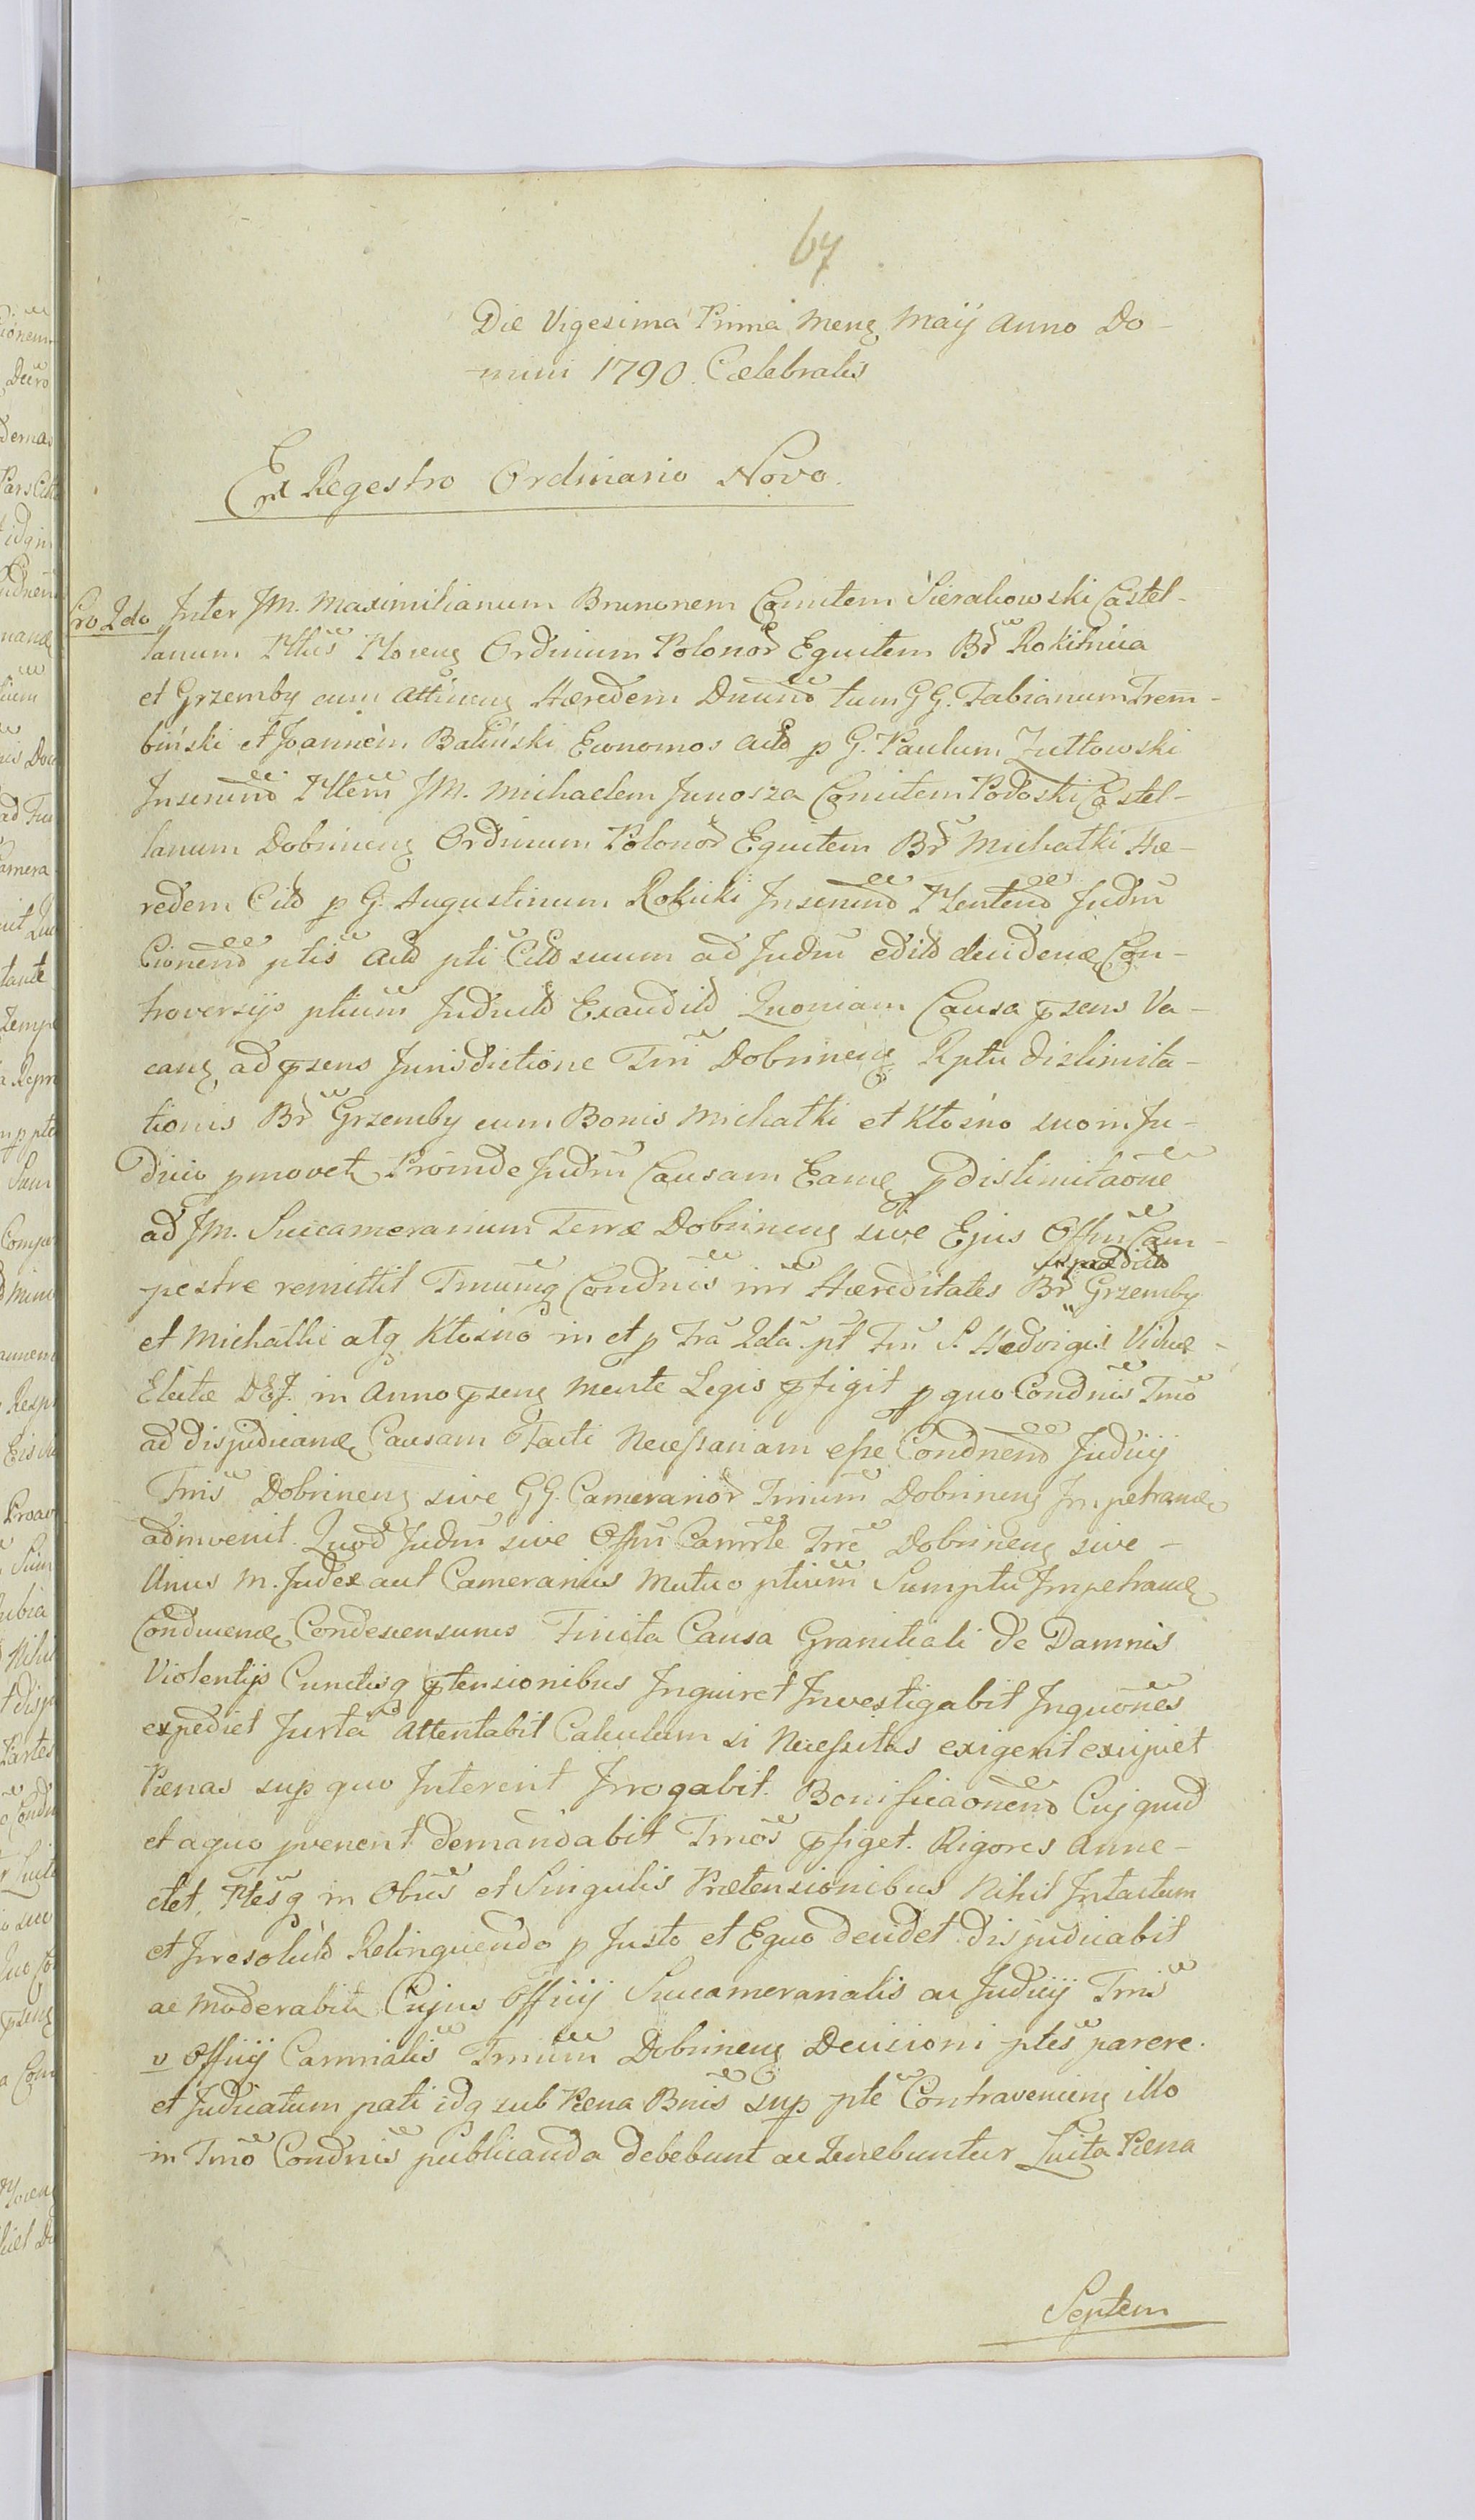 67
Die Vigesima Prima Mens Maij Anno Do-
mini 1790. Cælebratis
Ex Regestro Ordinario Novo.
Pro 2do Inter JM. Maximilianum Brunonem Comitem Sierakowski Castel-
lanum Ordinum Polonor Equitem Br Rokitnica
et Grzemby cum Attinens Hæredem tum GG. Fabianum Trem-
biński et Joannem Baliński Economos Actd p G. Paulum Zutłowski
Insernnd JM. Michaelem Junosza Comitem Podoski Castel-
lanum Dobrinens Ordinum Polonor Equitem Br Michałki Hæ-
redem Citd p G. Augustinum Rokicki Insernnd Judm
ptis Actd pti Citd suum ad Judm edito decidenæ Con-
troversijs ptium Judicld Exaudild Quoniam Causa psens Va-
cans ad psens Jurisdictione Tri Dobrinens Rptu dislimita-
tionis Br Grzemby cum Bonis Michałki et Kłośno suo in Ju-
dicio pmovet Proinde Judm Causam Eamq p dislimitaone
ad JM. Succamerarium Terræ Dobrinens sive Ejus Offm Cam-
pestre remittit Tmumq Condnis inr Hæreditates Br Grzemby
et Michałki atq Kłośno in et p Tra 2da pt Fm S. Hedvigis Viduæ
Electæ D&J. in Anno psens Mente Legis pfigit p quo Condnis Tmo
ad disjudicanæ Causam Facti Necessariam esse Condnend Judicij
Trris Dobrinens sive GG. Camerarior Trrium Dobrinens Impetranæ
adinvenit. Quod Judm sive Offm Camrle Trre Dobrinens sive
Unus M. Judex aut Camerarius Mutuo ptium Sumptu Impetranæ
Conducenæ Condescensurus Finita Causa Granitiali de Damnis
Violentijs Cunctisq ptensionibus Inquiret Investigabit Inquones
expediet Jurta Attentabit Calculum si Necessitas exigerit excipiet
Pænas sup quo Intererit Irrogabit. Bonificaonend Cuj quid
et a quo pvenerit demandabit Tmos pfiget. Rigores Anne-
ctet, Ptesq in Obus et Singulis Prætensionibus Nihil Intactum
et Irresolutd Relinquendo p Justo et Equo decidet disjudicabit
ac moderabit Cujus Officij Succamerarialis ac Judicij Trris
v Officij Camrialis Trrium Dobrinens Decisioni ptes parere
et Judicatum pati idq sub Pæna Bnis sup pte Contraveniens illo
in Tmo Condnis publicanda debebunt ac Tenebuntur Luita Pæna
Septem